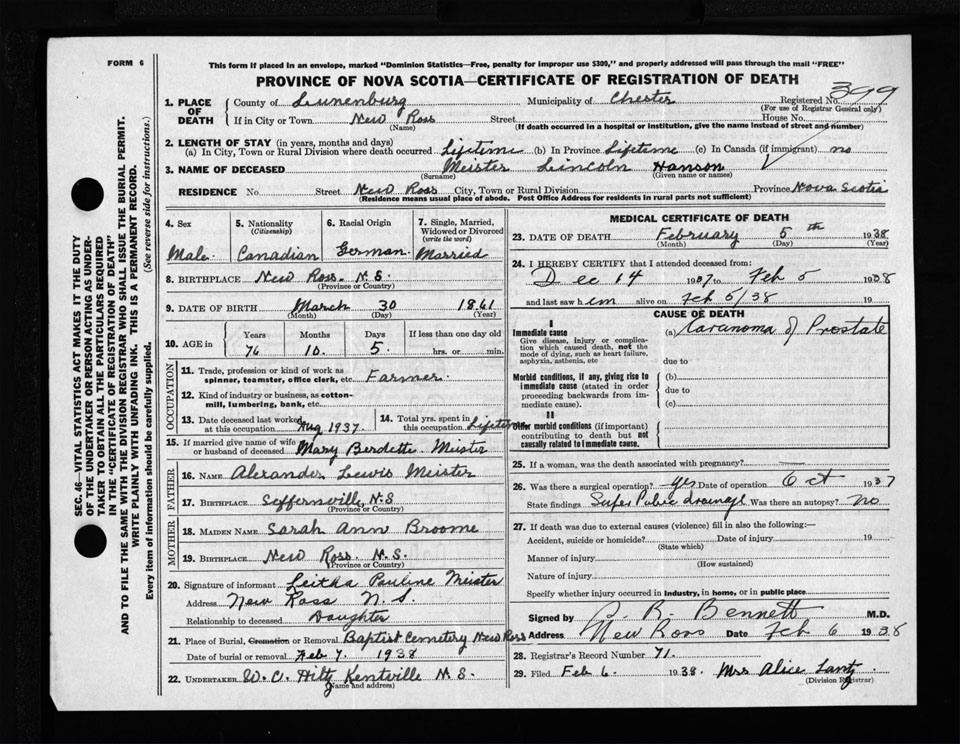 FORM 6
This form if placed in an envelope, marked "Dominion Statistics—Free, penalty for improper use $309," and properly addressed will pass through the mail "FREE"
PROVINCE OF NOVA SCOTIA—CERTIFICATE OF REGISTRATION OF DEATH
SEC. 46—VITAL STATISTICS ACT MAKES IT THE DUTY
OF THE UNDERTAKER OR PERSON ACTING AS UNDER-
TAKER TO OBTAIN ALL THE PARTICULARS REQUIRED
IN THE "CERTIFICATE OF REGISTRATION OF DEATH"
AND TO FILE THE SAME WITH THE DIVISION REGISTRAR WHO SHALL ISSUE THE BURIAL PERMIT.
WRITE PLAINLY WITH UNFADING INK. THIS IS A PERMANENT RECORD.
Every item of information should be carefully supplied. (See reverse side for instructions.)
1. PLACE OF DEATH
County of Lunenburg Municipality of Chester Registered No. 399
(For use of Registrar General only)
If in City or Town New Ross Street House No.
(Name) (If death occurred in a hospital or institution, give the name instead of street and number)
2. LENGTH OF STAY (in years, months and days)
(a) In City, Town or Rural Division where death occurred Lifetime (b) In Province Lifetime (c) In Canada (if immigrant) no
3. NAME OF DECEASED Meister Lincoln Hanson
(Surname) (Given name or names)
RESIDENCE No. Street New Ross City, Town or Rural Division Province Nova Scotia
(Residence means usual place of abode. Post Office Address for residents in rural parts not sufficient)
4. Sex
Male
5. Nationality
(Citizenship)
Canadian
6. Racial Origin
German
7. Single, Married, Widowed or Divorced
(write the word)
Married
8. BIRTHPLACE New Ross N.S.
(Province or Country)
9. DATE OF BIRTH March 30 1861
(Month) (Day) (Year)
10. AGE in
Years Months Days If less than one day old
76 10 5 hrs. or min.
OCCUPATION
11. Trade, profession or kind of work as
spinner, teamster, office clerk, etc. Farmer
12. Kind of industry or business, as cotton-
mill, lumbering, bank, etc.
13. Date deceased last worked
at this occupation Aug 1937
14. Total yrs. spent in
this occupation Lifetime
15. If married give name of wife
or husband of deceased Mary Berdette Meister
FATHER
16. NAME Alexander Lewis Meister
17. BIRTHPLACE Seffernsville N.S
(Province or Country)
MOTHER
18. MAIDEN NAME Sarah Ann Broome
19. BIRTHPLACE New Ross N.S.
(Province or Country)
20. Signature of informant Leitha Pauline Meister
Address New Ross N.S.
Relationship to deceased Daughter
21. Place of Burial, Cremation or Removal Baptist Cemetery New Ross
Date of burial or removal Feb 7. 1938
22. UNDERTAKER W. C. Hiltz Kentville N.S.
(Name and address)
MEDICAL CERTIFICATE OF DEATH
23. DATE OF DEATH February 5th 1938
(Month) (Day) (Year)
24. I HEREBY CERTIFY that I attended deceased from:
Dec 14 1937 to Feb 5 1938
and last saw him alive on Feb 5/38 19
CAUSE OF DEATH
I
Immediate cause
Give disease, injury or complica-
tion which caused death, not the
mode of dying, such as heart failure,
asphyxia, asthenia, etc
(a) Caranoma of Prostate
due to
Morbid conditions, if any, giving rise to
immediate cause (stated in order
proceeding backwards from im-
mediate cause).
(b)
due to
(c)
II
Other morbid conditions (if important)
contributing to death but not
causally related to immediate cause.
25. If a woman, was the death associated with pregnancy?
26. Was there a surgical operation? yes Date of operation Oct 1937
State findings Supra Pubic drainage Was there an autopsy? no
27. If death was due to external causes (violence) fill in also the following:—
Accident, suicide or homicide? Date of injury 19
(State which)
Manner of injury
(How sustained)
Nature of injury
Specify whether injury occurred in Industry, in home, or in public place
Signed by R. Bennett M.D.
Address New Ross Date Feb 6 1938
28. Registrar's Record Number 71.
29. Filed Feb 6. 1938. Mrs Alice Lantz
(Division Registrar)